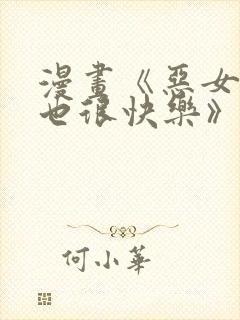 漫畫《惡女
也很快樂》
何小華